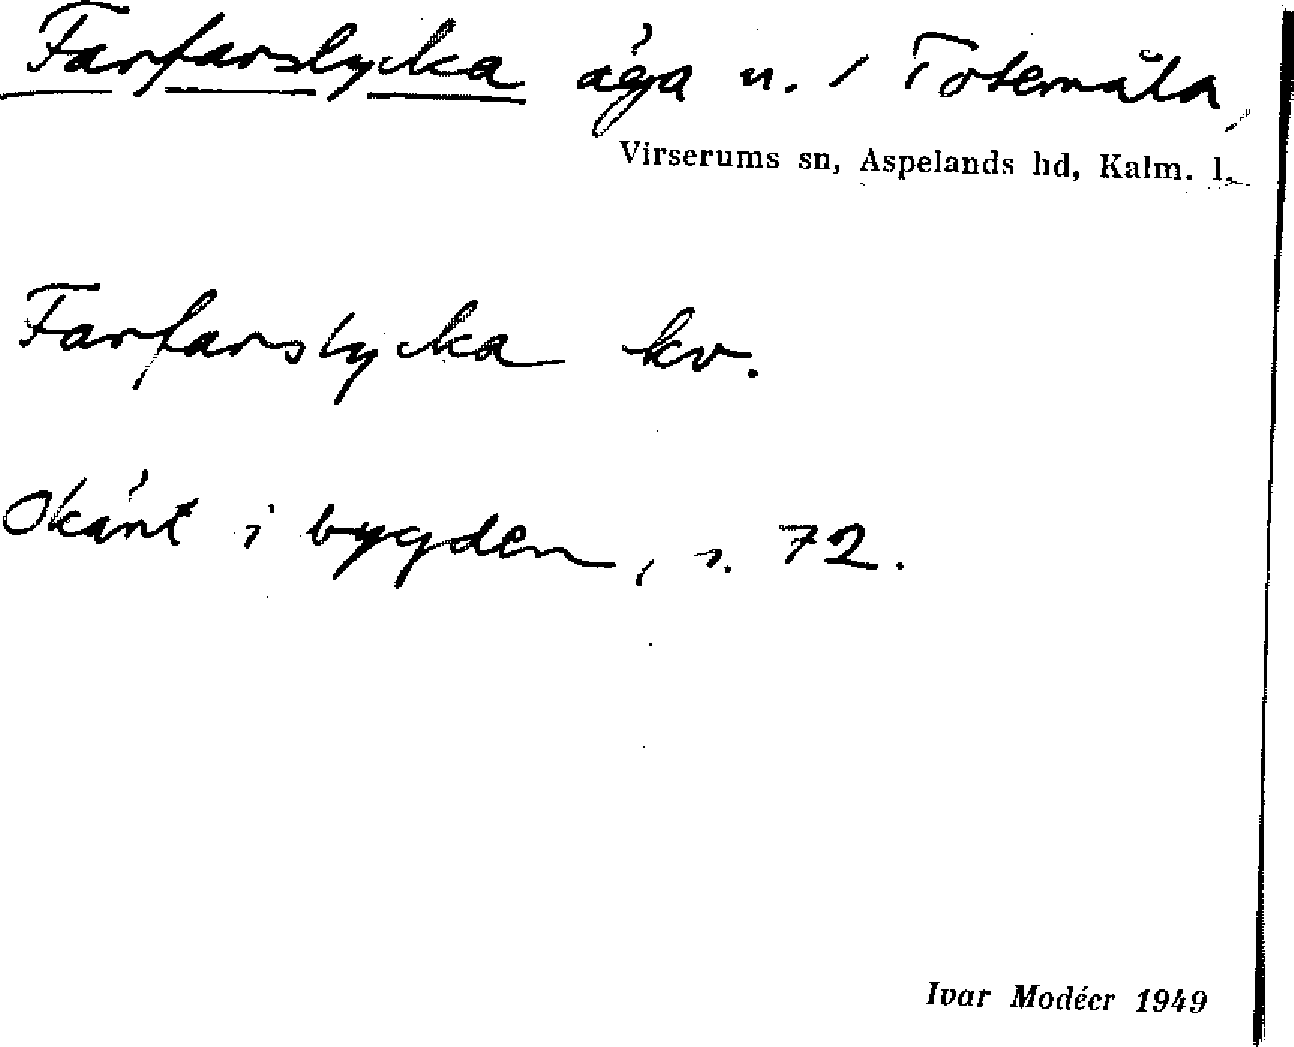 Farfarslycka äga n. i Totemåla,
Virserums sn, Aspelands hd, Kalm. l.
Farfarslycka kv.
Okänt i bygden, s. 72.
Ivar Modéer 1949